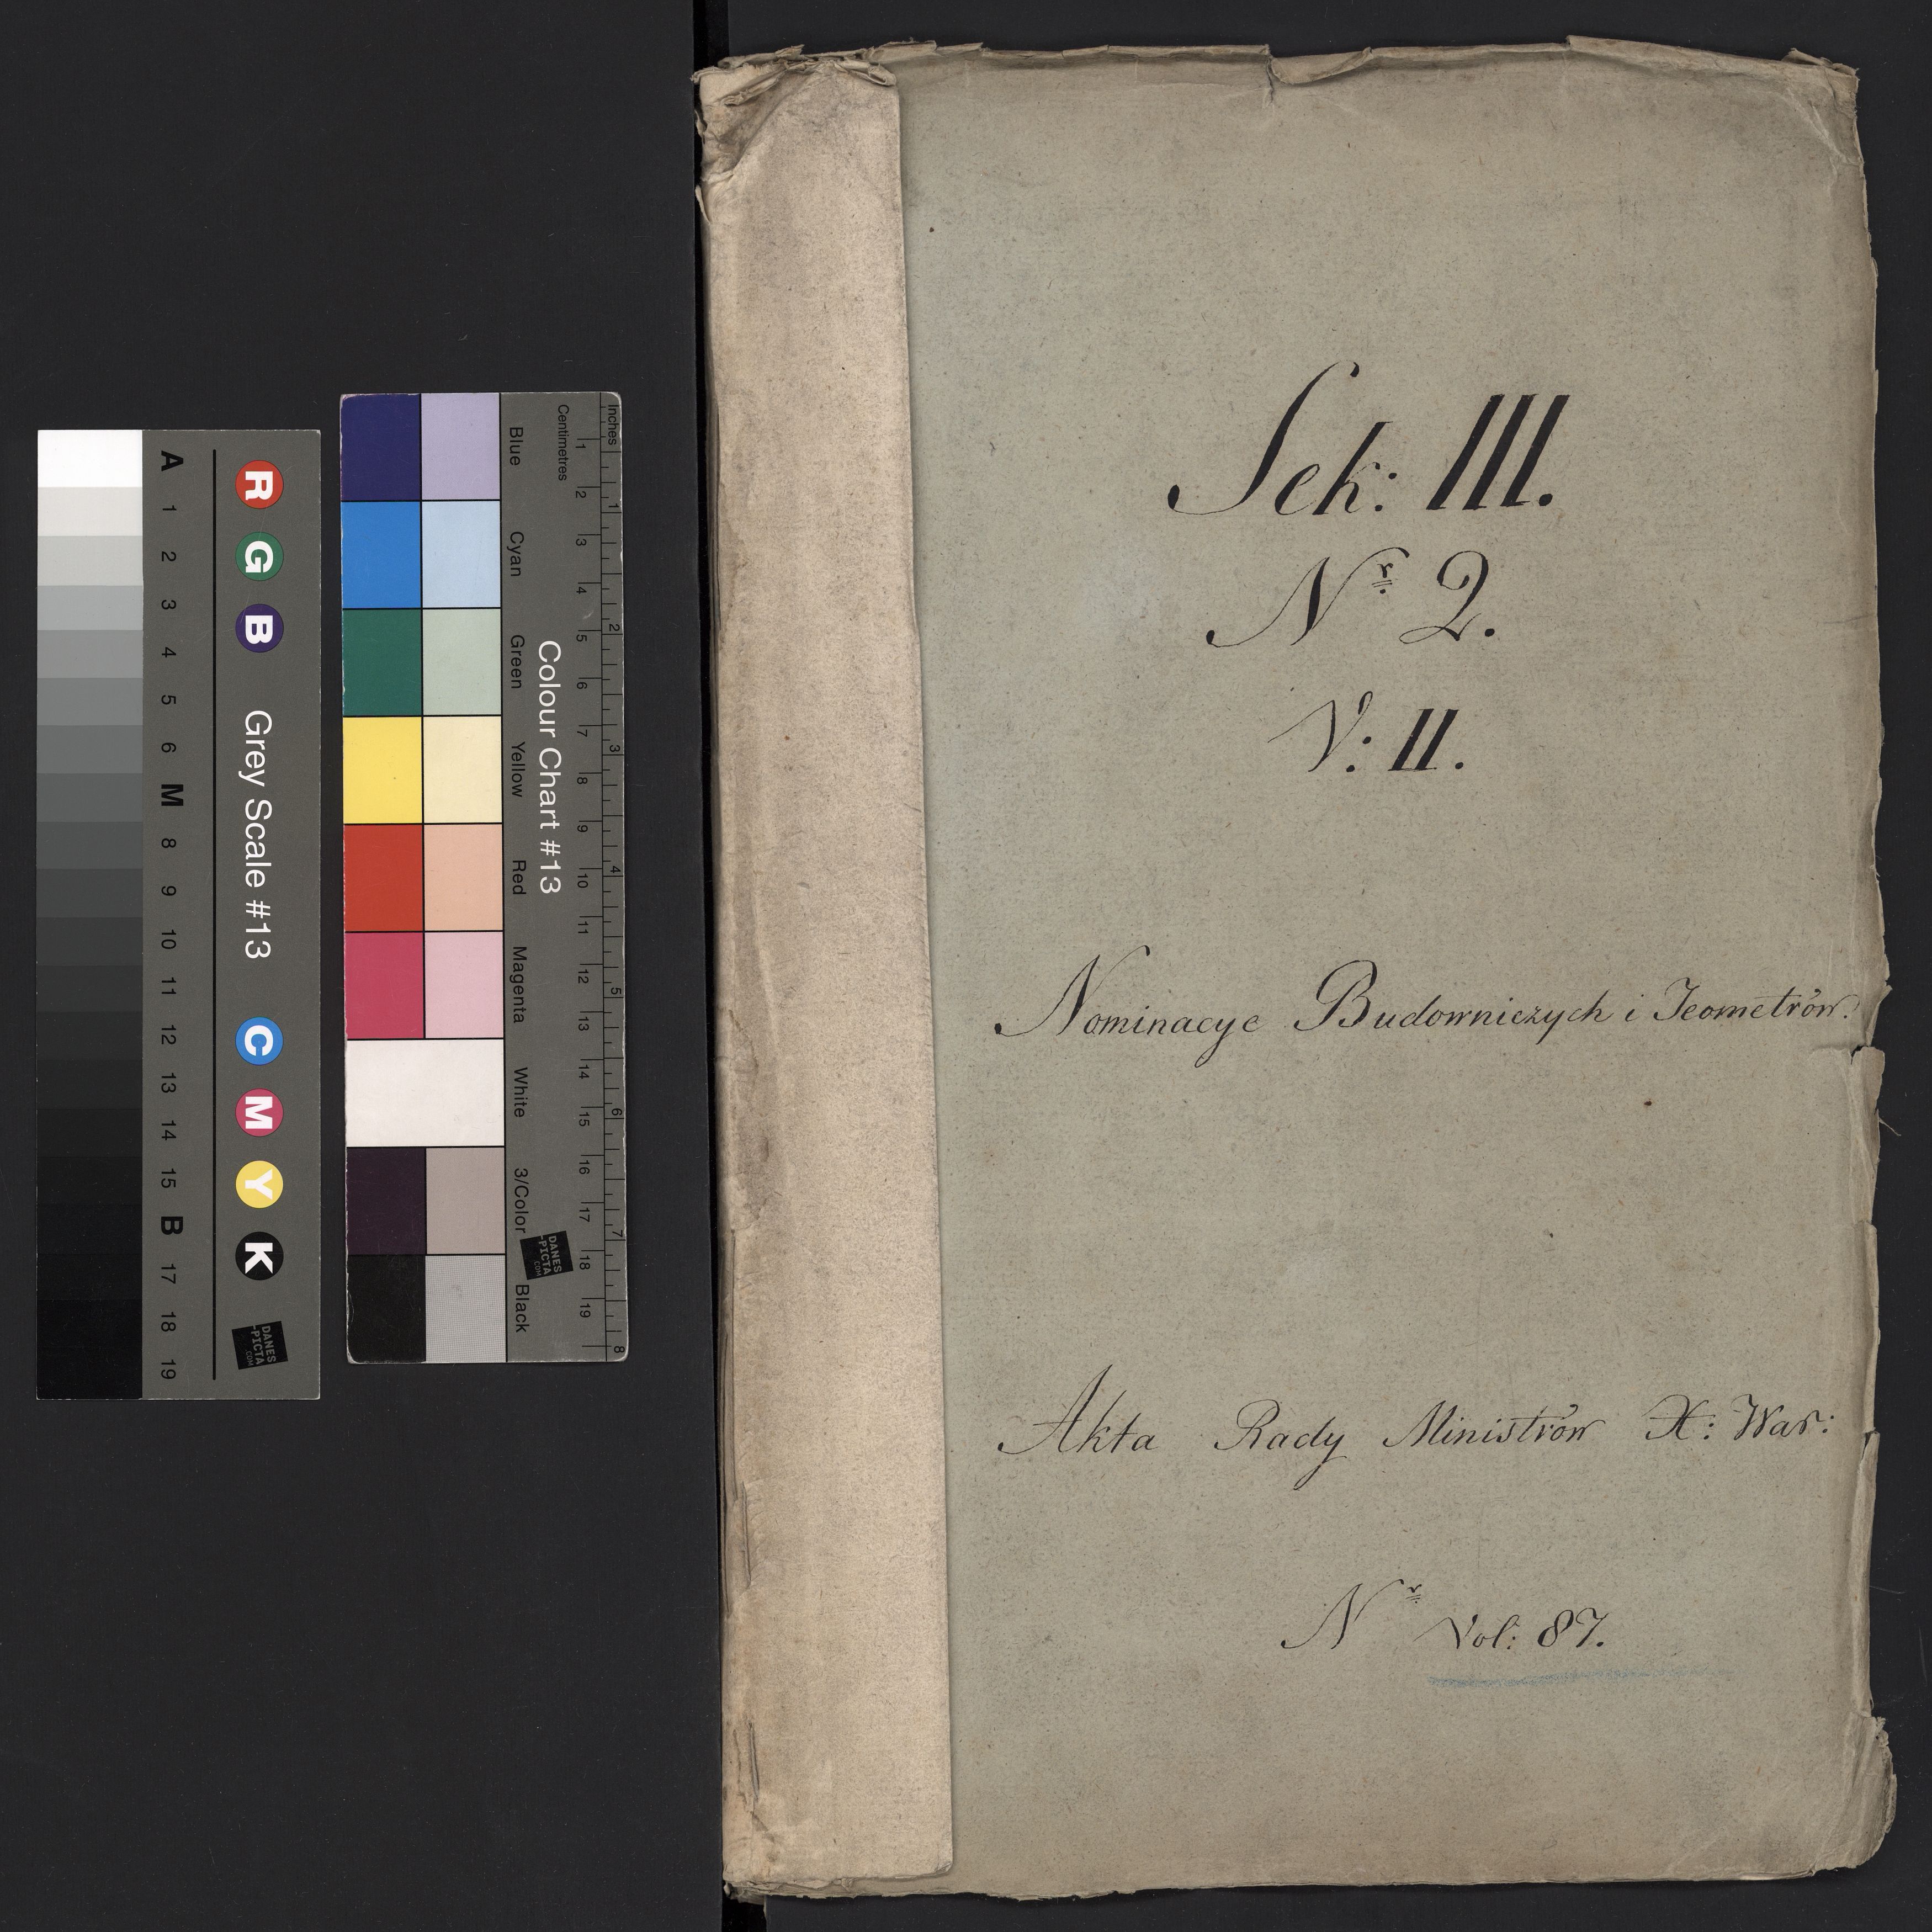 Sek: III.
Nr 2.
V: II.
Nominacye Budowniczych i Jeometrów.
Akta Rady Ministrów X: War:
Nr Vol: 87.
Inches
Centimetres
1 2 3 4 5 6 7 8
1 2 3 4 5 6 7 8 9 10 11 12 13 14 15 16 17 18 19
Colour Chart #13
Blue Cyan Green Yellow Red Magenta White 3/Color Black
DANES
-PICTA
.COM
R G B Grey Scale #13 C M Y K
DANES
-PICTA
.COM
A 1 2 3 4 5 6 M 8 9 10 11 12 13 14 15 B 17 18 19